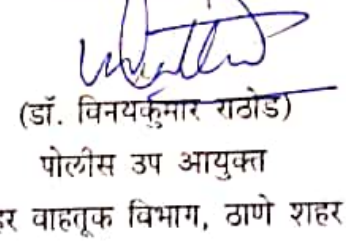 (डॉ. विनयकुमार राठोड)
पोलीस उप आयुक्त
वाहतूक विभाग, ठाणे शहर